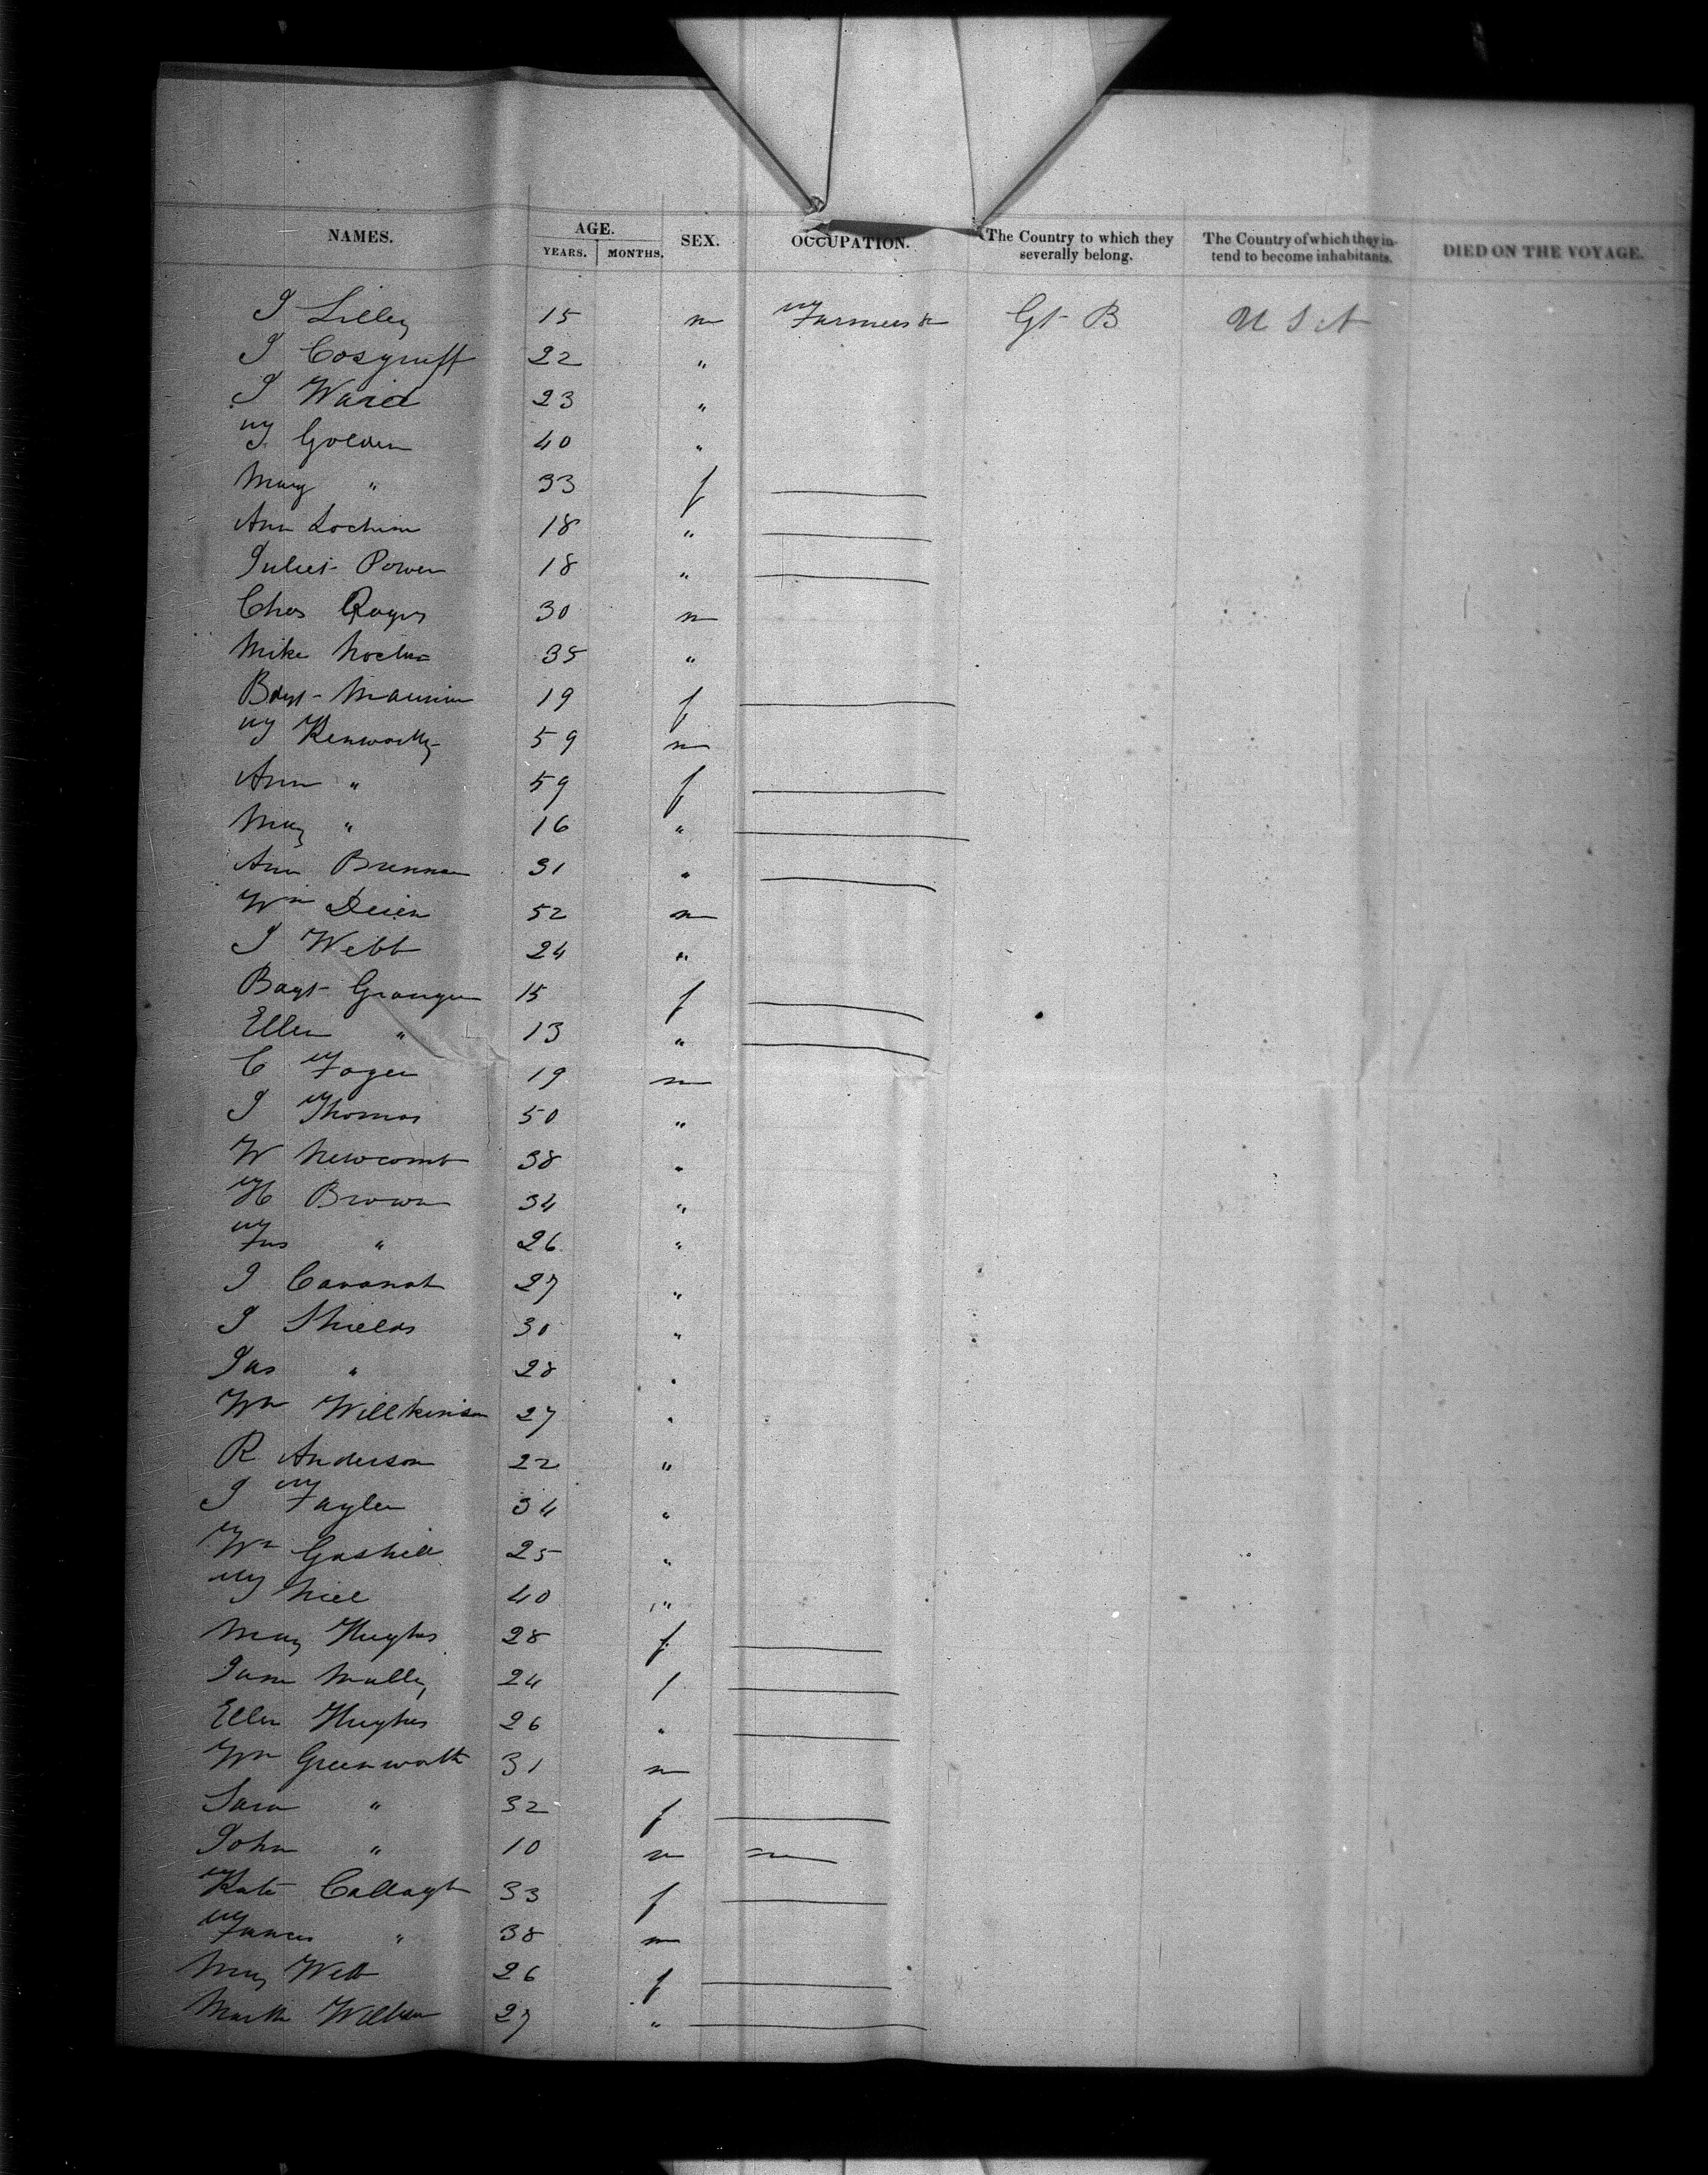 NAMES. AGE. SEX. OCCUPATION. The Country to which they severally belong. The Country of which they intend to become inhabitants. DIED ON THE VOYAGE.
YEARS. MONTHS.
J Lilley 15 m Farmers &c Gt B U S A
J Cosgruff 22 "
J Ward 23 "
T Golden 40 "
Mary " 33 f
Ann 18 "
Juliet Power 18 "
Chas Rogers 30 m
Mike 35 "
19 f
T Kenworthy 59 m
Ann " 59 f
Mary " 16 "
Ann Brennan 31 "
Wm 52 m
J Webb 24 "
Granger 15 f
Ellen " 13 "
C 19 m
J Thomas 50 "
W Newcomb 38 "
H Brown 34 "
" 26 "
J Cavanah 27 "
J Shields 30 "
Jas " 28 "
Wm Willkinson 27 "
R Anderson 22 "
J Tayler 34 "
Wm Gaskell 25 "
40 "
Mary Hughes 28 f
Jane Mully 24 f
Ellen Hughes 26 "
Wm Greenwood 31 m
Sara " 32 f
John " 10 m
Kate Callagh 33 f
Frances " 38 m
Mary Webb 26 f
Martha 27 "